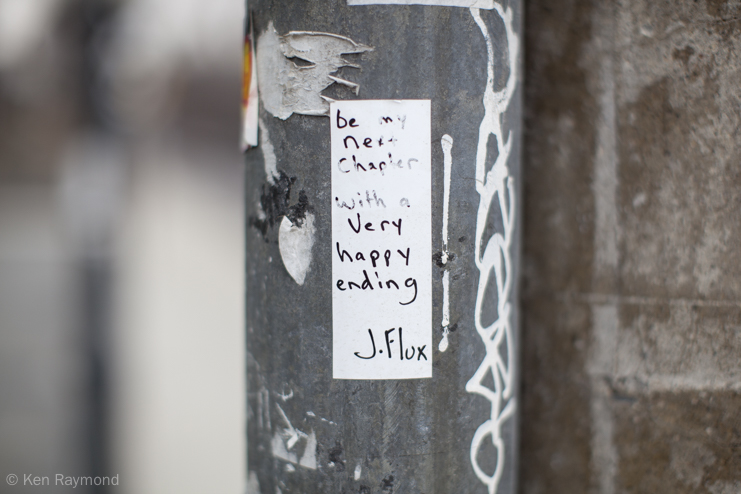 be my
next
Chapter
with a
Very
happy
ending
J.Flux
© Ken Raymond